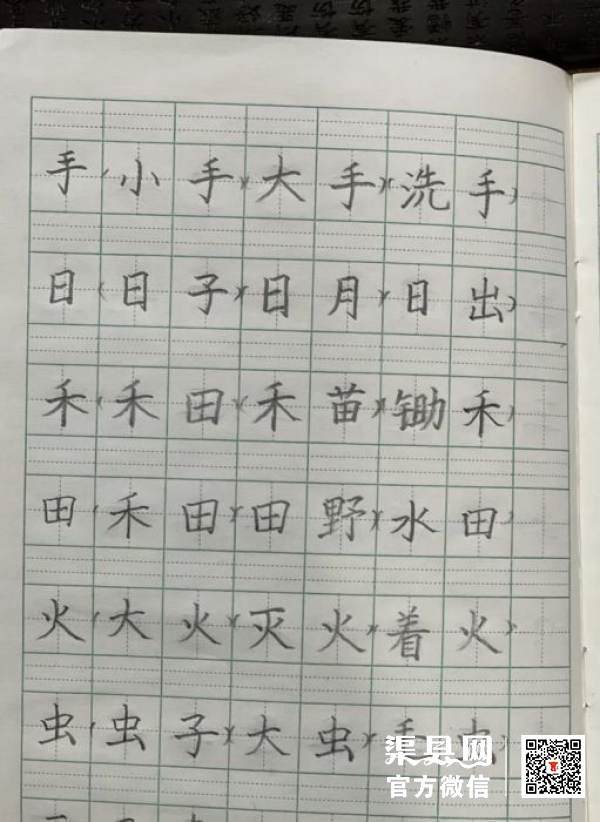 手(小手)(大手)(洗手)
日(日子)(日月)(日出)
禾(禾田)(禾苗)(锄禾)
田(禾田)(田野)(水田)
火(大火)(灭火)(着火)
虫(虫子)(大虫)(虫)
渠县网
官方微信